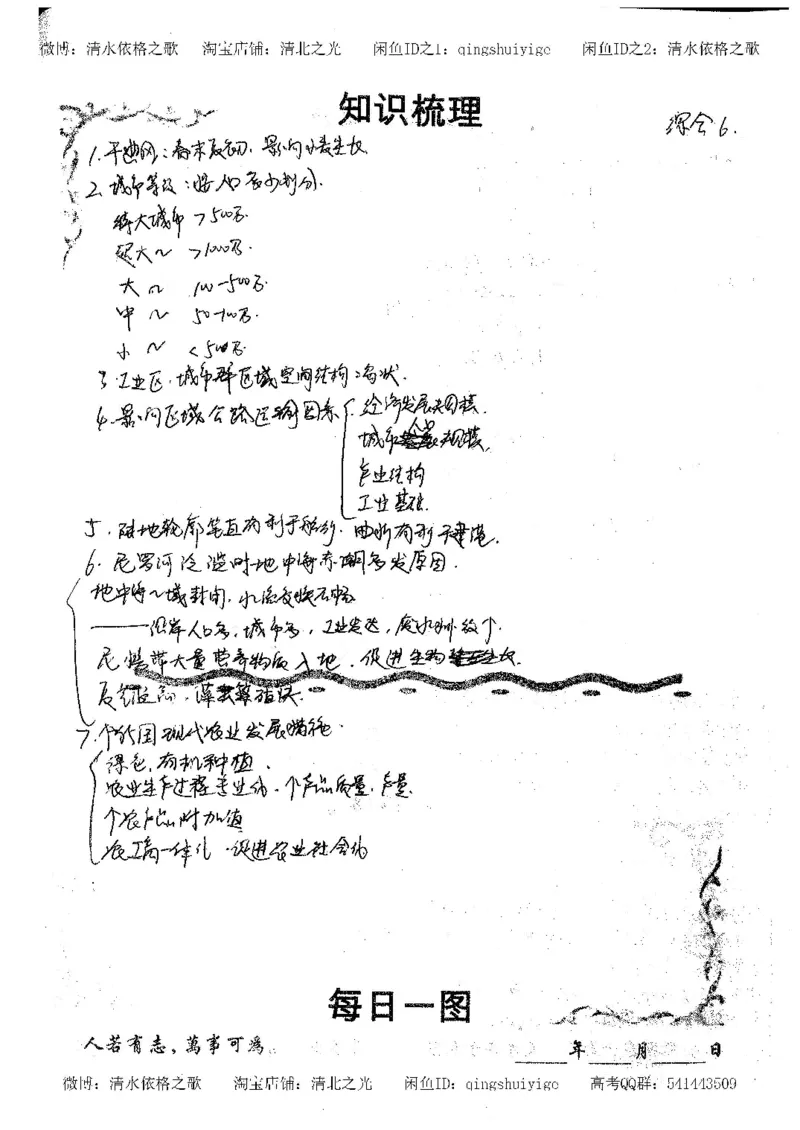 微博：清水依格之歌 淘宝店铺：清北之光 闲鱼ID之1：qingshuiyige 闲鱼ID之2：清水依格之歌
知识梳理
综合6.
1.干热风：春末夏初，影响小麦生长
2.城市等级：按人口多少划分.
特大城市 >500万.
超大～ >1000万.
大～ 100-500万.
中～ 50-100万.
小～ <50万.
3.工业区，城市群区域空间结构：岛状.
4.影响区域公路运输因素
经济发展规模.
城市规模.
产业结构
工业基础.
5.陆地轮廓笔直有利于航行.曲折有利于建港.
6.尼罗河泛滥时地中海赤潮多发原因.
地中海～域封闭，水体交换不畅
——沿岸人口多，城市多，工业发达，废水排放↑.
尼携带大量营养物质入地，促进生物生长.
7.↑我国现代农业发展措施.
绿色，有机种植.
农业生产过程专业化，↑产品质量，产量.
↑农产品附加值
农工商一体化，促进农业社会化
每日一图
人若有志，萬事可為
年 月 日
微博：清水依格之歌 淘宝店铺：清北之光 闲鱼ID：qingshuiyige 高考QQ群：541443509